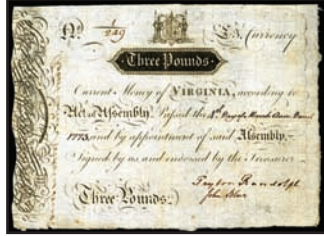 No. 1/249 £3. Currency
Three Pounds.
Current Money of VIRGINIA, according to
Act of Assembly, Passed the Day of March Anno Domini
1773, and by appointment of said Assembly,
Signed by us, and endorsed by the Treasurer
Peyton Randolph
Three Pounds. John Blair